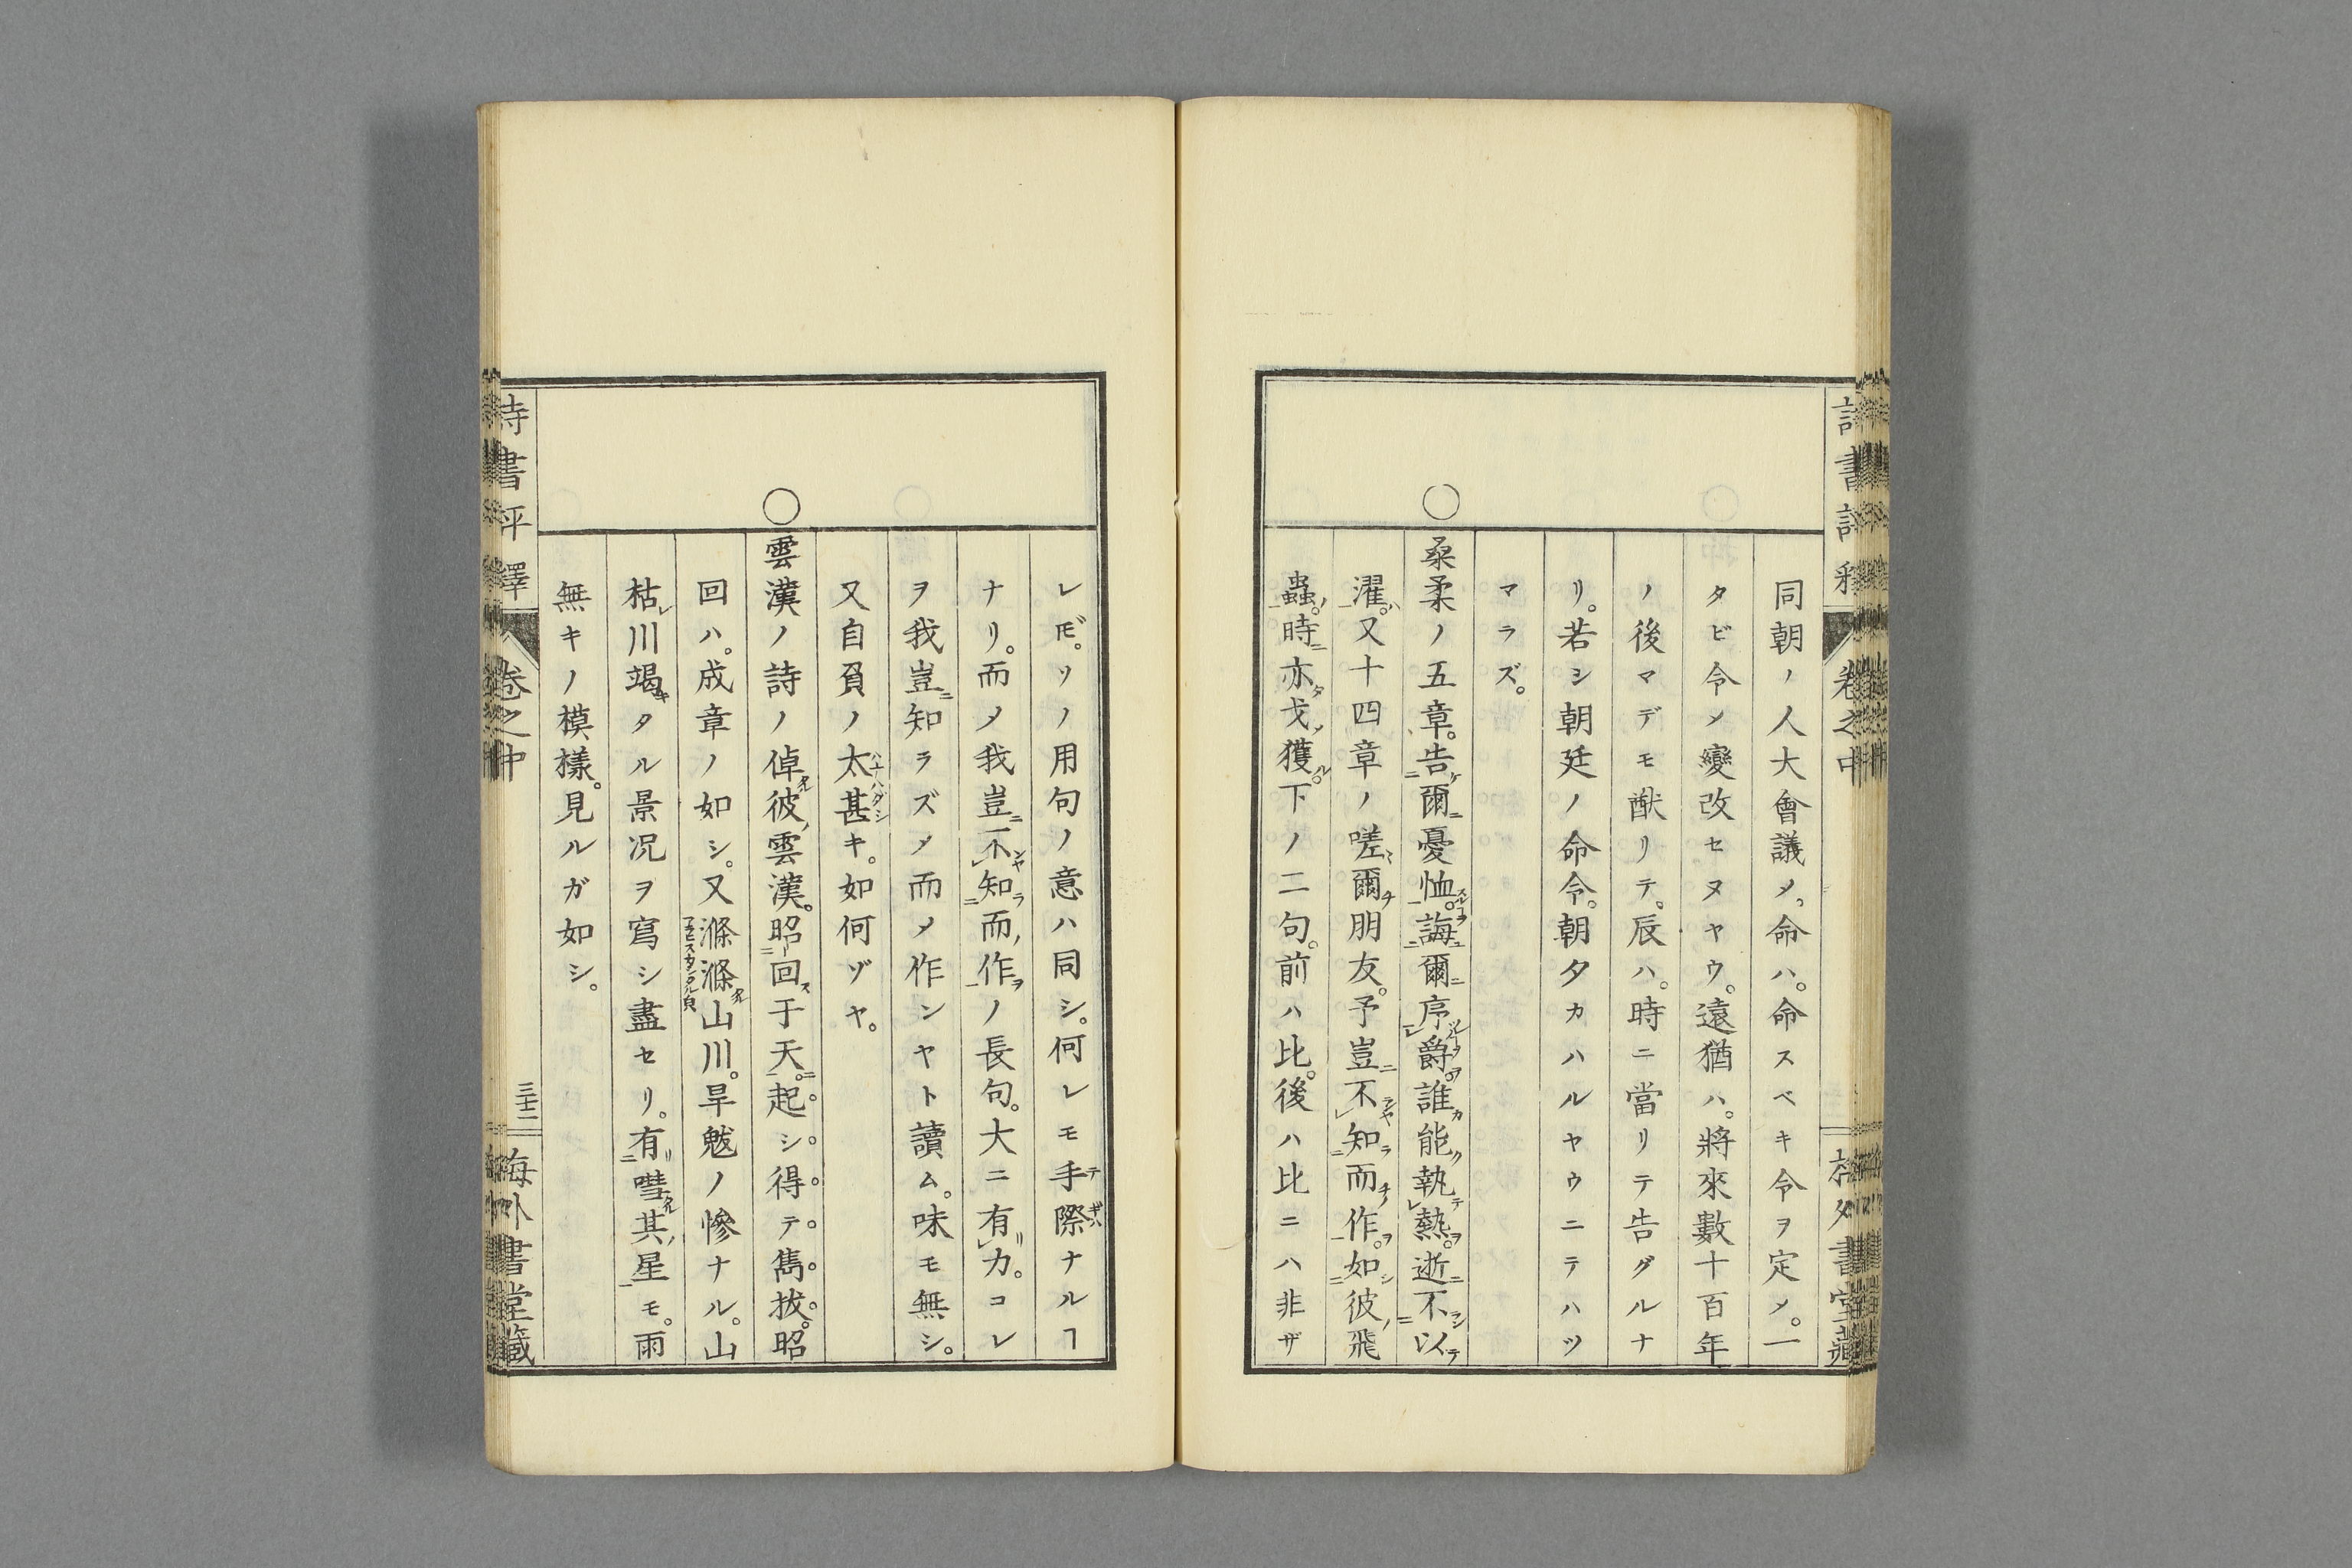 同朝ノ人大會議メ。命ハ。命スベキ令ヲ定メ。一
タビ令メ變改セヌヤウ。遠猶ハ。將來數十百年
ノ後マデモ猷リテ。辰ハ。時ニ當リテ告グルナ
リ。若シ朝廷ノ命令。朝夕カハルヤウニテハツ
マラズ。
○桑柔ノ五章。告爾憂恤。誨爾序爵。誰能執熱。逝不以
濯。又十四章ノ嗟爾朋友。予豈不知而作。如彼飛
蟲。時亦弋獲。下ノ二句。前ハ比。後ハ比ニハ非ザ
レ𪜈。ソノ用句ノ意ハ同シ。何レモ手際ナルヿ
ナリ。而メ我豈不知而作ノ長句。大ニ有力。コレ
ヲ我豈ニ知ラズメ而メ作ンヤト讀ム。味モ無シ。
又自負ノ太甚キ。如何ゾヤ。
○雲漢ノ詩ノ倬彼雲漢。昭回于天。起シ得テ雋拔。昭
回ハ。成章ノ如シ。又滌滌山川。旱魃ノ慘ナル。山
枯レ川竭キタル景況ヲ寫シ盡セリ。有嘒其星モ。雨
無キノ模樣。見ルガ如シ。
詩書評釋 卷之中 三十二 海外書堂藏